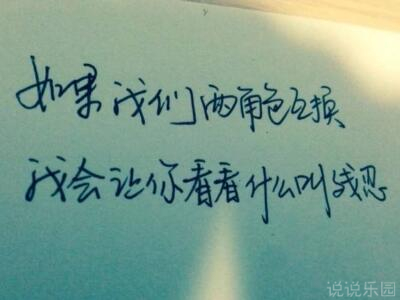 如果我们两角色互换
我会让你看看什么叫残忍
说说乐园